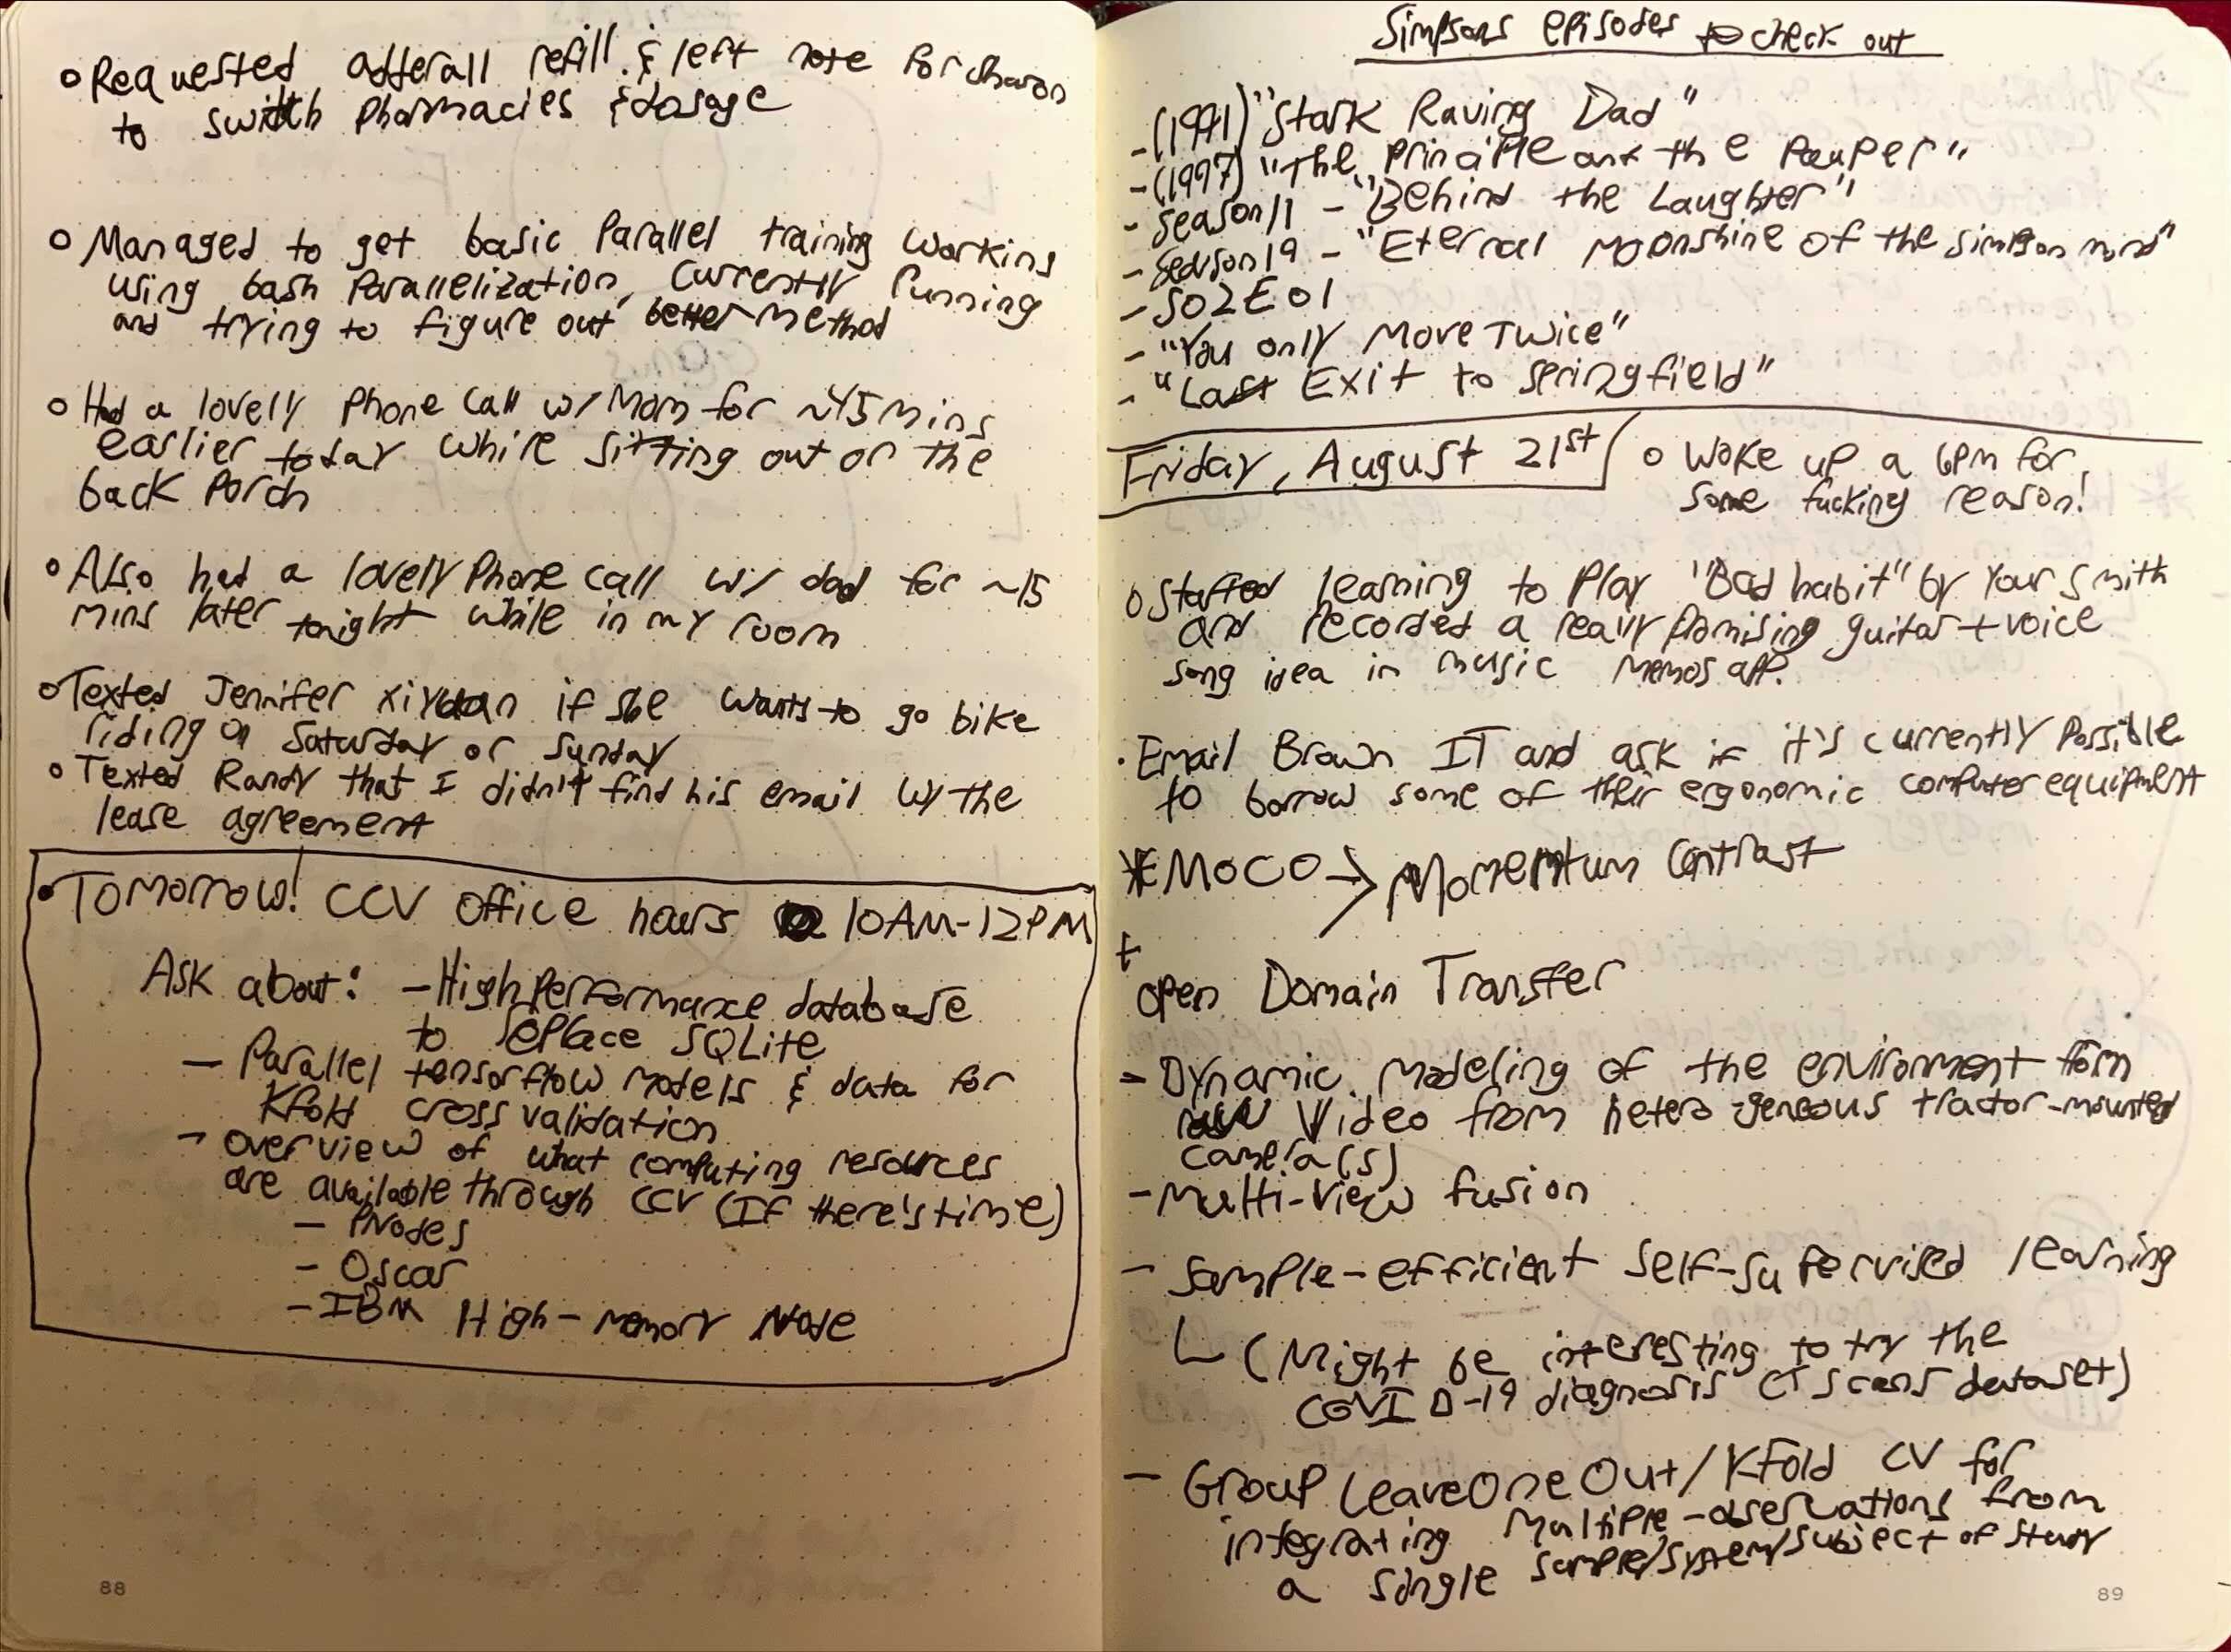 o Requested adderall refill & left note for Sharon
to switch pharmacies & dosage
o Managed to get basic parallel training working
using bash parallelization, currently running
and trying to figure out better method
o Had a lovely phone call w/ Mom for ~45 mins
earlier today while sitting out on the
back porch
o Also had a lovely phone call w/ dad for ~15
mins later tonight while in my room
o Texted Jennifer if she wants to go bike
riding on Saturday or Sunday
o Texted Randy that I didn't find his email w/ the
lease agreement
• Tomorrow! CCV office hours @ 10AM-12PM
Ask about: - High Performance database
to replace SQLite
- Parallel tensorflow models & data for
Kfold cross validation
- overview of what computing resources
are available through CCV (If there's time)
- PNodes
- Oscar
- IBM High-memory Node
88
Simpsons episodes to check out
- (1991) "Stark Raving Dad"
- (1997) "The Principle and the Pauper"
- Season 11 - "Behind the Laughter"
- Season 19 - "Eternal Moonshine of the Simpson mind"
- S02E01
- "You only Move Twice"
- "Last Exit to Springfield"
Friday, August 21st
o Woke up a 6PM for
some fucking reason!
o Started learning to play "Bad habit" by Your Smith
and recorded a really promising guitar + voice
song idea in music memos app.
• Email Brown IT and ask if it's currently possible
to borrow some of their ergonomic computer equipment
* MoCO → Momentum Contrast
+
open Domain Transfer
- Dynamic modeling of the environment from
raw Video from heterogeneous tractor-mounted
camera(s)
- Multi-View fusion
- Sample-efficient self-supervised learning
(Might be interesting to try the
COVID-19 diagnosis CT scans dataset)
- Group LeaveOneOut/KFold CV for
integrating multiple-observations from
a single sample/system/subject of study
89